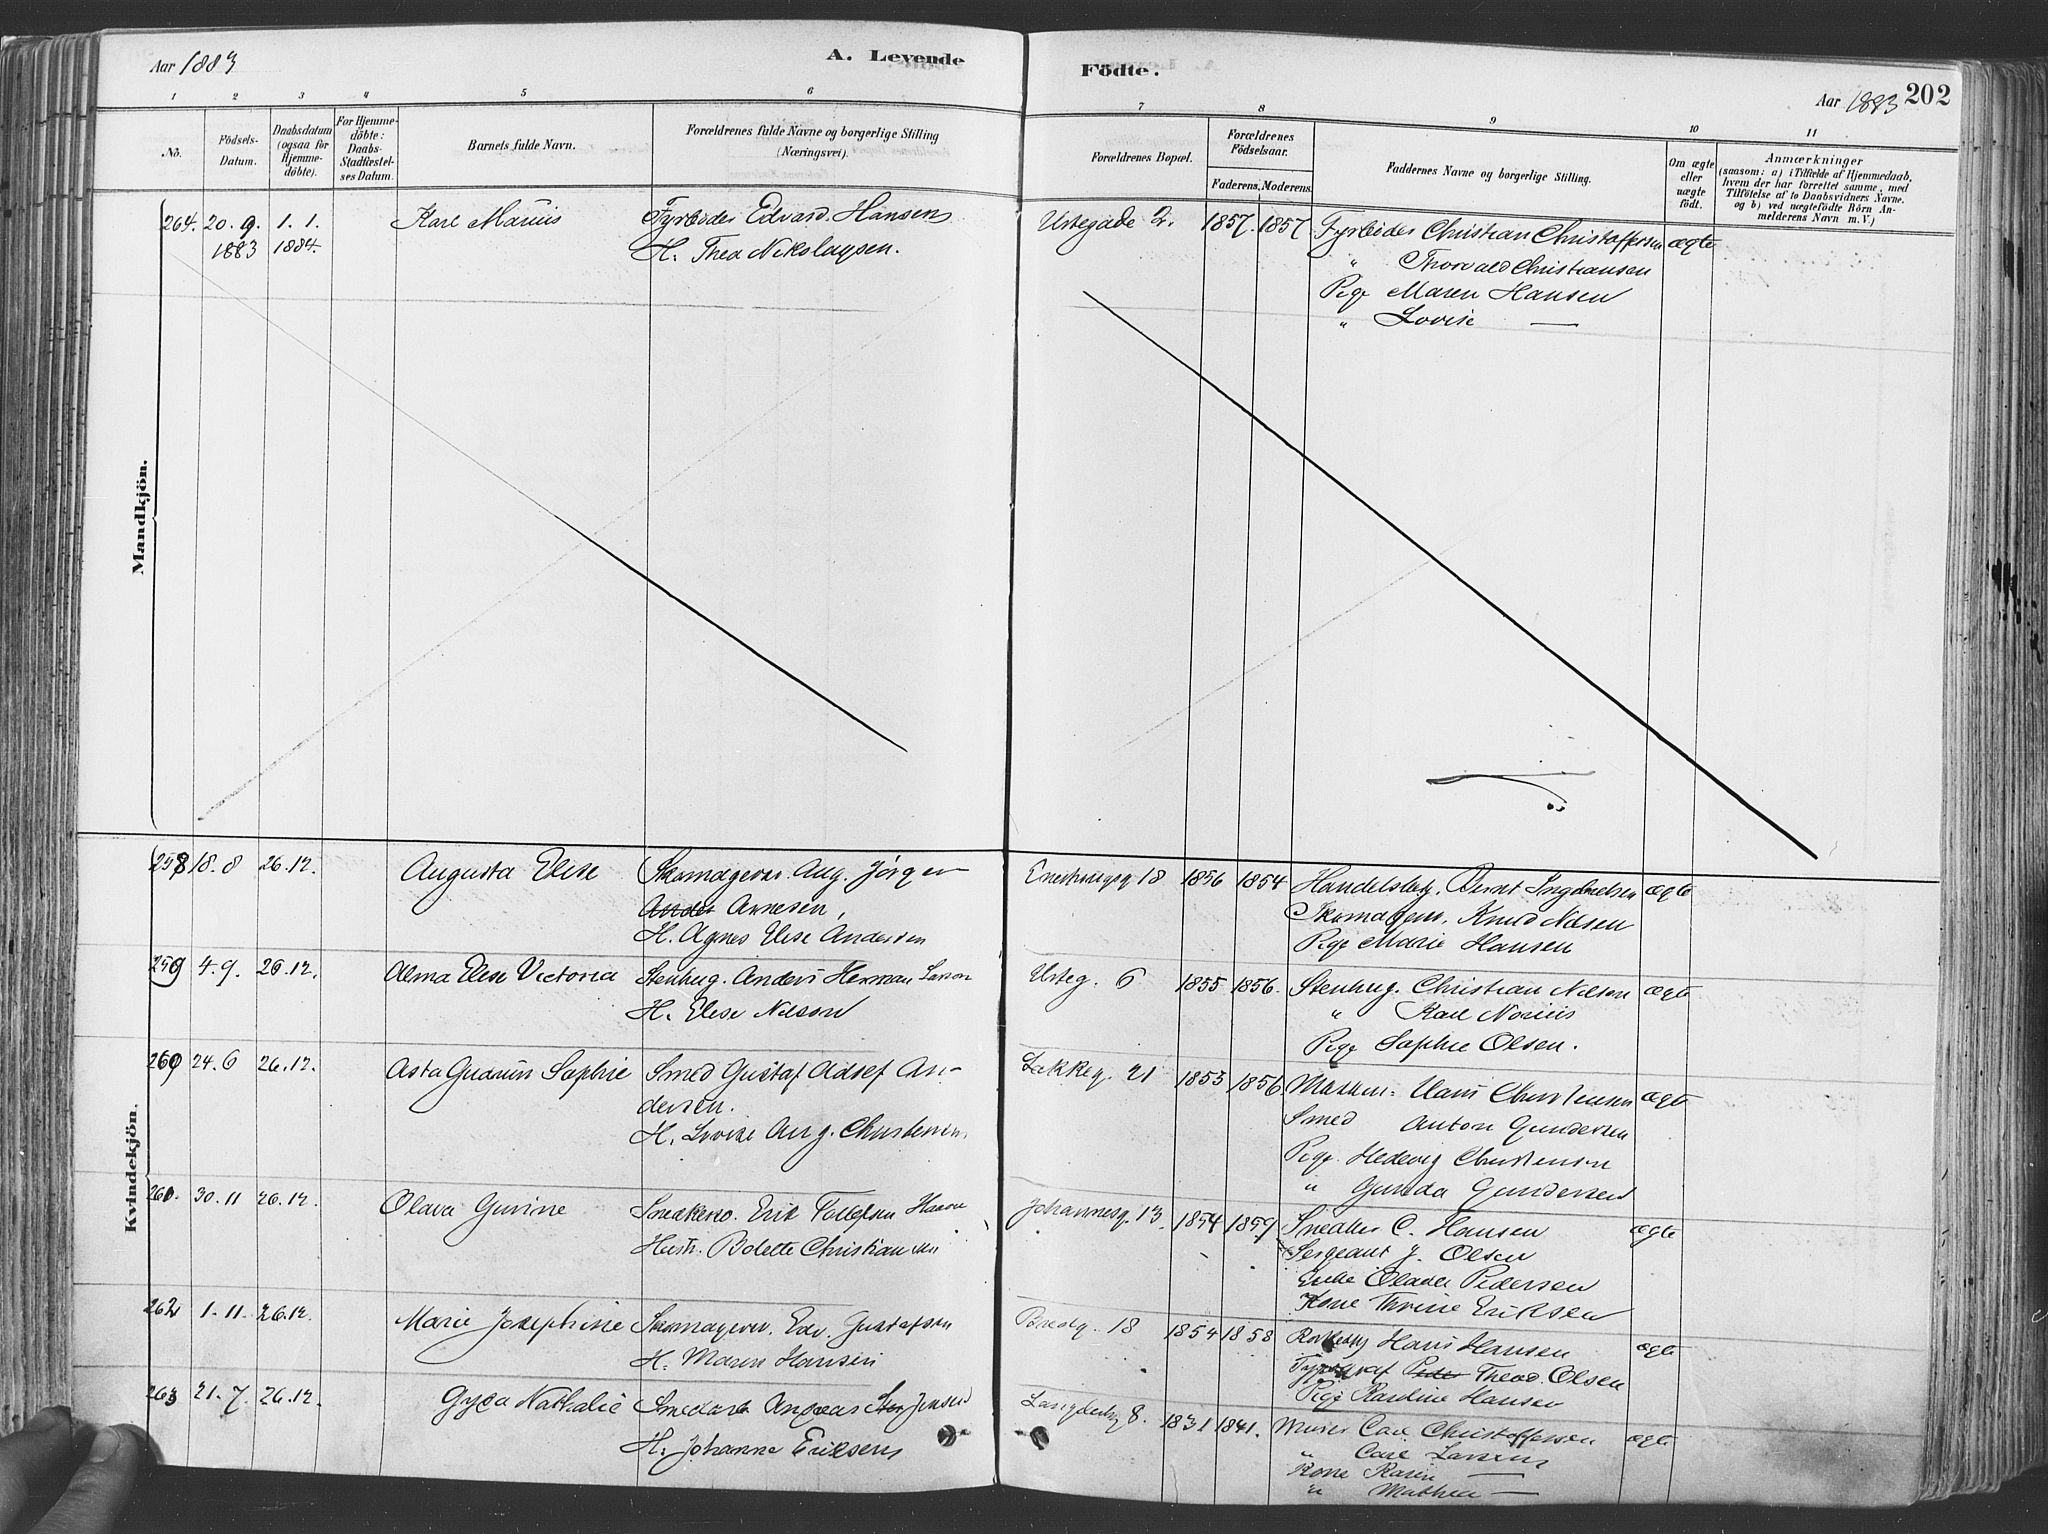 Aar 1883
A. Levende
Födte.
Aar 1883
202
1 2 3 4 5 6 7 8 9 10 11
No.
Födsels-
Datum.
Daabsdatum
(ogsaa for
Hjemme-
döbte).
For Hjemme-
döbte:
Daabs-
Stadfæstel-
ses Datum.
Barnets fulde Navn.
Forældrenes fulde Navne og borgerlige Stilling
(Næringsvei).
Forældrenes Bopæl.
Forældrenes
Födselsaar.
Faderens. Moderens.
Faddernes Navne og borgerlige Stilling.
Om ægte
eller
uægte
födt.
Anmærkninger
(saasom: a) i Tilfælde af Hjemmedaab,
hvem der har forrettet samme, med
Tilföielse af to Daabsvidners Navne,
og b) ved uægtefödte Börn An-
melderens Navn m. V.)
Mandkjön.
264. 20.9. 1.1. Karl Marius Fyrböder Edvard Hansen Urtegade 2. 1857. 1857 Fyrböder Christian Christoffersen ægte
1883 1884. H. Thea Nikolaysen. " Thorvald Christiansen
Pige Maren Hansen
" Lovise —
Kvindekjön.
258 18.8 26.12. Augusta Elise Skomagersv. Aug. Jörgen 18 1856 1854 Handelsbetj. Bernt ægte
Arnesen, Skomagersv. Knud Nilsen
H. Agnes Elise Andersen Pige Marie Hansen
259 4.9. 26.12. Alma Elise Victoria Stenhug. Anders Herman Larson Urteg. 6 1855 1856. Stenhug. Christian Nilson ægte
H. Elise Nilson " Karl
Pige Sophie Olsen.
260 24.6 26.12. Asta Gudrun Sophie Smed Gustaf Adolf An- Lakkeg. 21 1855 1856 Hans Christensen ægte
dersen. Smed Anton Gundersen
H. Lovise Aug. Christensen Pige Hedevig Christensen
" Gunda Gundersen
261. 30.11 26.12. Olava Erik Johannesg. 13. 1854 1859 Snedker C. Hansen ægte
Hustr. Bolette Christiansen Sergeant J. Olsen
Enke Pedersen
Kone Thrine Eriksen
262 1.11. 26.12. Marie Josephine Skomagersv. Edv. Gustafson Bredg. 18 1854 1858 Hans Hansen ægte
H. Maren Hansen Typograf Theod. Olsen
Pige Karoline Hansen
263 21.7. 26.12. Gyda Nathalie Andreas Jensen 8. 1831 1841. Murer Carl Christoffersen ægte
H. Johanne Eriksen " Carl Larsen
Kone Karen —
" Mathea —